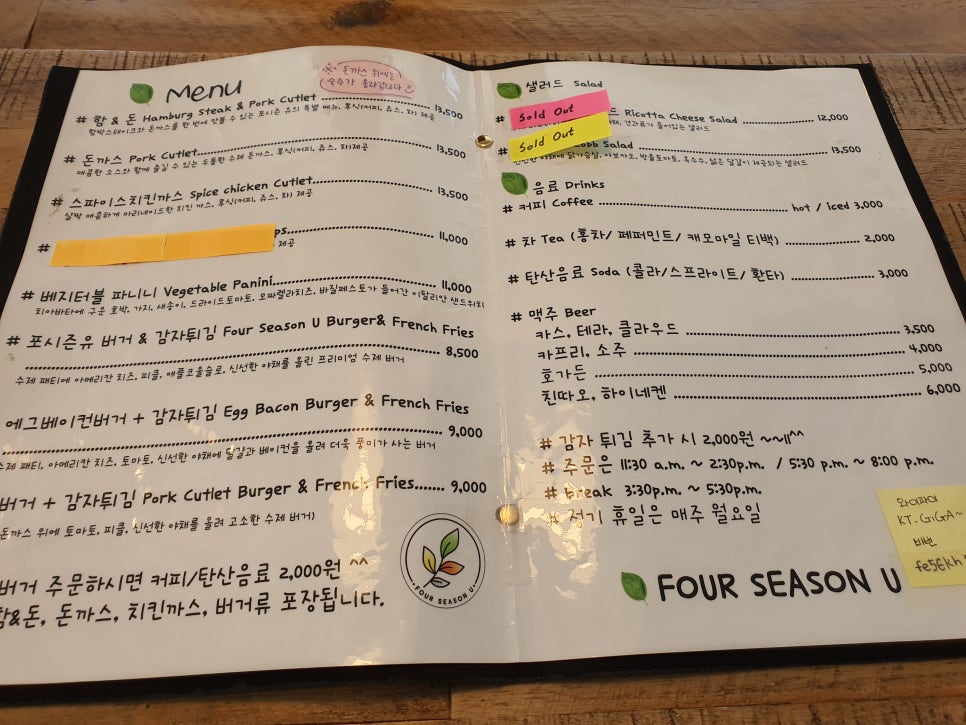 Menu
돈까스 위에는
숙주가 올라갑니다
# 함 & 돈 Hamburg Steak & Pork Cutlet 13,500
함박스테이크와 돈까스를 한 번에 맛볼 수 있는 포시즌 유의 특별 메뉴, 후식(커피, 쥬스, 차) 제공
# 돈까스 Pork Cutlet 13,500
매콤한 소스와 함께 즐길 수 있는 두툼한 수제 돈까스, 후식(커피, 쥬스, 차)제공
# 스파이스치킨까스 Spice chicken Cutlet 13,500
살짝 매콤하게 마리네이드한 치킨 까스, 후식(커피, 쥬스, 차) 제공
# ps 11,000
제공
# 베지터블 파니니 Vegetable Panini 11,000
치아바타에 구운 호박, 가지, 새송이, 드라이드토마토, 모짜렐라치즈, 바질페스토가 들어간 이탈리안 샌드위치
# 포시즌유 버거 & 감자튀김 Four Season U Burger& French Fries
8,500
수제 패티에 아메리칸 치즈, 피클, 애플코울슬로, 신선한 야채를 올린 프리미엄 수제 버거
에그베이컨버거 + 감자튀김 Egg Bacon Burger & French Fries
9,000
수제 패티, 아메리칸 치즈, 토마토, 신선한 야채에 달걀과 베이컨을 올려 더욱 풍미가 사는 버거
버거 + 감자튀김 Pork Cutlet Burger & French Fries....... 9,000
돈까스 위에 토마토, 피클, 신선한 야채를 올려 고소한 수제 버거)
버거 주문하시면 커피/탄산음료 2,000원 ^^
함&돈, 돈까스, 치킨까스, 버거류 포장됩니다.
FOUR SEASON U
샐러드 Salad
# Sold Out Ricotta Cheese Salad 12,000
견과류가 들어있는 샐러드
# Sold Out Cobb Salad 13,500
야채에 닭가슴살, 아보카도, 방울토마토, 옥수수, 삶은 달걀이 제공되는 샐러드
음료 Drinks
# 커피 Coffee hot / iced 3,000
# 차 Tea (홍차/ 페퍼민트/ 캐모마일 티백) 2,000
# 탄산음료 Soda (콜라/스프라이트/ 환타) 3,000
# 맥주 Beer
카스, 테라, 클라우드 3,500
카프리, 소주 4,000
호가든 5,000
칭따오, 하이네켄 6,000
# 감자 튀김 추가 시 2,000원 ~~!!^^
# 주문은 11:30 a.m. ~ 2:30p.m. / 5:30 p.m. ~ 8:00 p.m.
# break 3:30p.m. ~ 5:30p.m.
# 정기 휴일은 매주 월요일
와이파이
KT_GiGA~
비번
fe56kh
FOUR SEASON U